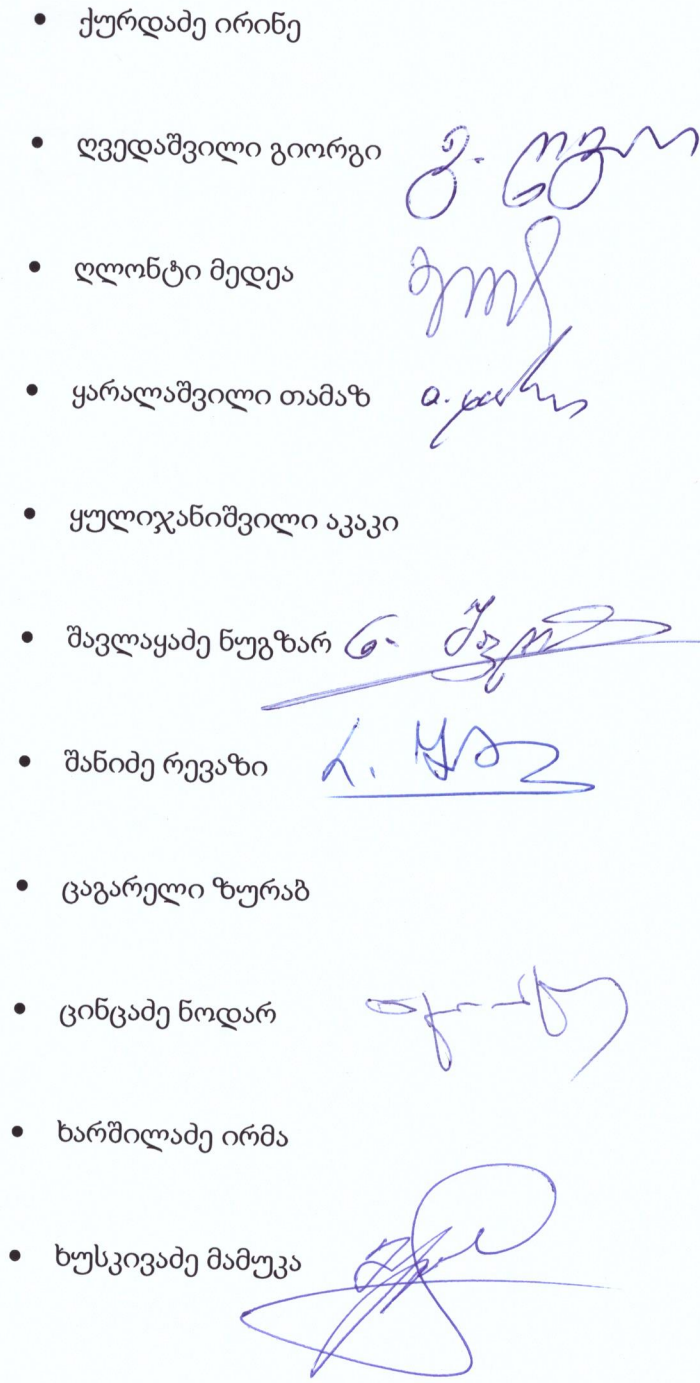 • ქურდაძე ირინე
• ღვედაშვილი გიორგი
• ღლონტი მედეა
• ყარალაშვილი თამაზ
• ყულიჯანიშვილი აკაკი
• შავლაყაძე ნუგზარ
• შანიძე რევაზი
• ცაგარელი ზურაბ
• ცინცაძე ნოდარ
• ხარშილაძე ირმა
• ხუსკივაძე მამუკა